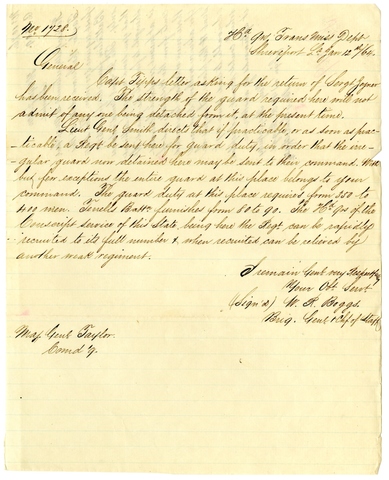 No 1728.
Hd Qrs Trans Miss Dept
Shreveport La Jan 12th/64.
General
Capt letter asking for the return of Sergt
has been received. The strength of the guard required here will not
admit of any one being detached from it, at the present time.
Lieut Genl Smith directs that if practicable, or as soon as prac-
-ticable, a Regt be sent here for guard duty, in order that the irre-
gular guard now detained here may be sent to their command. With
but few exceptions the entire guard at this place belongs to your
command. The guard duty at this place requires from 350 to
400 men. Battn furnishes from 80 to 90. The Hd Qrs of the
Conscript service of this State, being here the Regt can be rapidly
recruited to its full number &, when recruited can be relieved by
another weak regiment.
I remain Genl very Respectfully
Your Obt Servt
(Sign'd) W. R. Boggs.
Brig. Genl & Chf of Staff
Maj Genl Taylor.
Comd'g.